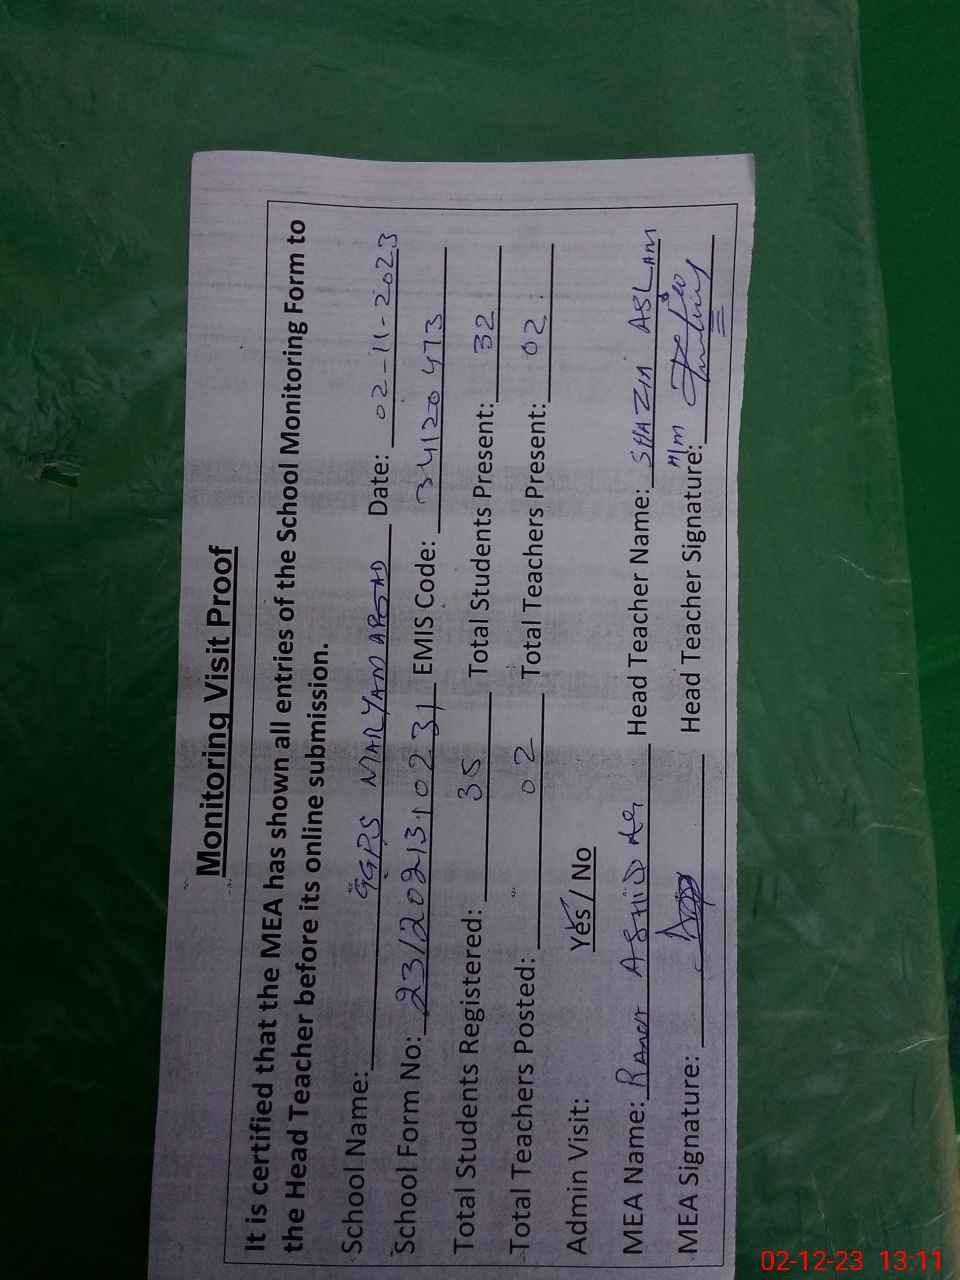 Monitoring Visit Proof
It is certified that the MEA has shown all entries of the School Monitoring Form to
the Head Teacher before its online submission.
School Name: GGPS MARYAM ABAD Date: 02-11-2023
School Form No: EMIS Code: 34120473
Total Students Registered: 35 Total Students Present: 32
Total Teachers Posted: 02 Total Teachers Present: 02
Admin Visit: Yes / No
MEA Name: Head Teacher Name: SHAZIA ASLAM
MEA Signature: Head Teacher Signature:
02-12-23 13:11